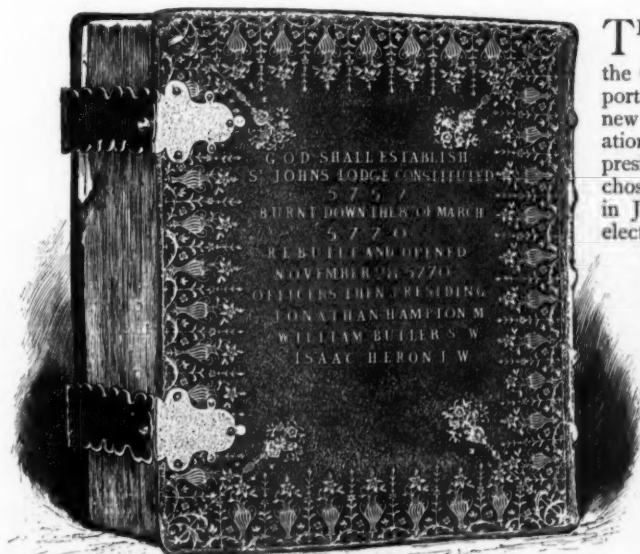 GOD SHALL ESTABLISH
St JOHNS LODGE CONSTITUTED
5757
BURNT DOWN THE 8th OF MARCH
5770
REBUILT AND OPENED
NOVEMBER 28 5770
OFFICERS THEN PRESIDING
JONATHAN HAMPTON M
WILLIAM BUTLER S W
ISAAC HERON J W
the
port
new
ation
presi
chos
in J
elect